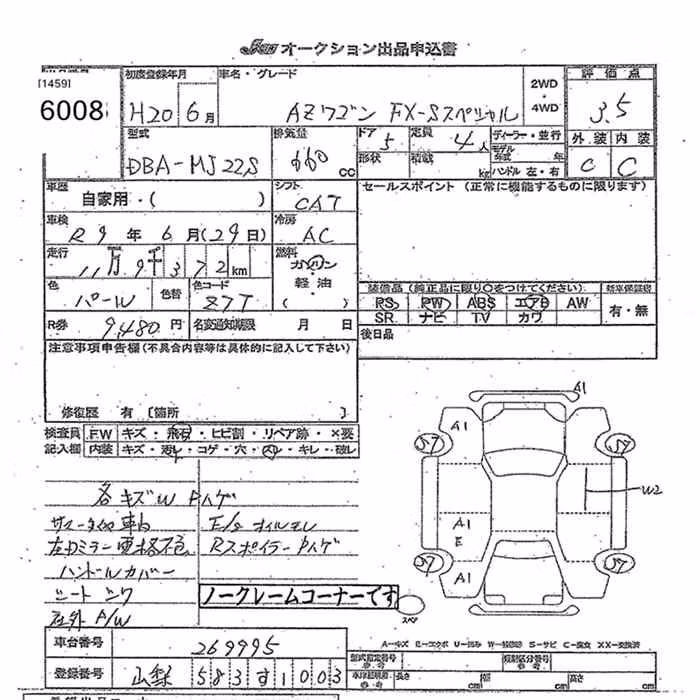 オークション出品申込書
[1459]
6008
初度登録年月
H20 6月
車名・グレード
AZワゴン FX-Sスペシャル
2WD
4WD
評価点
3.5
型式
DBA-MJ22S
排気量
660 CC
ドア 5
定員 4人
ディーラー・並行
外装 内装
C C
形状
積載 kg
モデル年式 年
ハンドル 左・右
車歴
自家用・( )
シフト
CAT
セールスポイント (正常に機能するものに限ります)
車検
R9年6月(29日)
冷房
AC
走行
11万9千372km
燃料
ガソリン
軽油
( )
色
パール
色替
色コード
Z7T
装備品 (純正品に限り○をつけてください)
新車保証書
PS PW ABS エアB AW
SR ナビ TV カワ
有・無
R券 9,480円
名変通知期限 月 日
後日品
注意事項申告欄(不具合内容等は具体的に記入して下さい)
修復歴 有 [箇所 ]
検査員 FW キズ・飛石・ヒビ割・リペア跡・×要
記入欄 内装 キズ・汚レ・コゲ・穴・スレ・キレ・破レ
各キズW Pハゲ
車内
E/gオイルモレ
Rスポイラー Pハゲ
ハンドルカバー
社外 A/W
ノークレームコーナーです
A1
A1
W2
A1
E
A1
スペア
A-キズ E-エクボ U-凹み W-補修跡 S-サビ C-腐食 XX-交換済
車台番号 269995
型式指定番号
類別区分番号
登録番号 583す1003
長さ cm 幅 cm 高さ cm